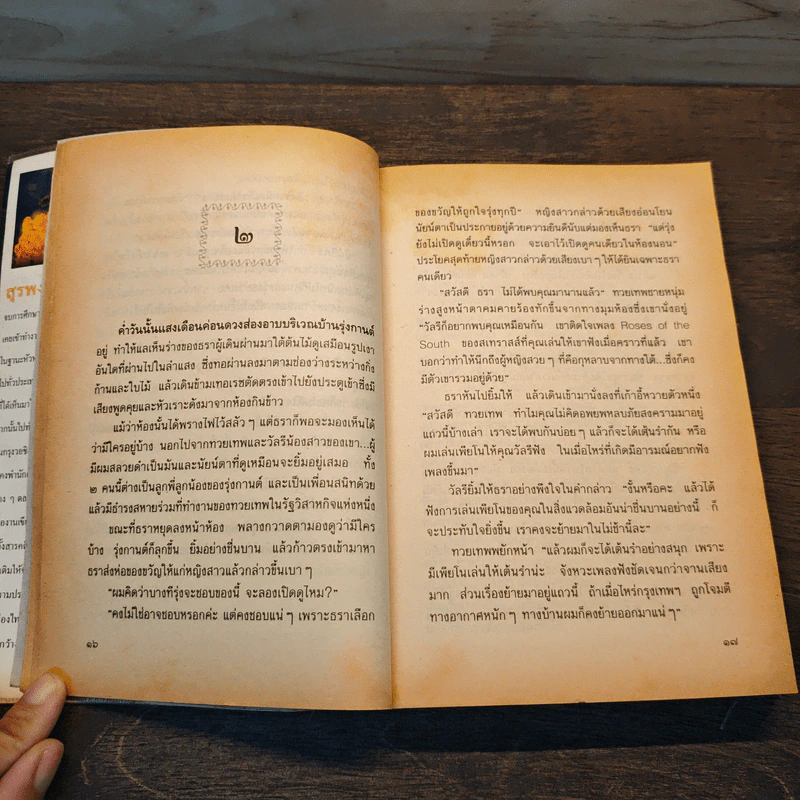 สุรพง
จบการศึกษา
เคยเข้าทำงา
ในฐานะหัวห
ไปทั่วประเท
๒
ค่ำวันนั้นแสงเดือนค่อนดวงส่องอาบบริเวณบ้านรุ่งกานต์
อยู่ ทำให้แลเห็นร่างของธราผู้เดินผ่านมาใต้ต้นไม้ดูเสมือนรูปเงา
อันใดที่ผ่านไปในลำแสง ซึ่งทอผ่านลงมาตามช่องว่างระหว่างกิ่ง
ก้านและใบไม้ แล้วเดินข้ามเทอเรซตัดตรงเข้าไปยังประตูเข้าซึ่งมี
เสียงพูดคุยและหัวเราะดังมาจากห้องกินข้าว
แม้ว่าห้องนั้นได้พรางไฟไว้สลัว ๆ แต่ธราก็พอจะมองเห็นได้
ว่ามีใครอยู่บ้าง นอกไปจากทวยเทพและวัลรีน้องสาวของเขา...ผู้
มีผมสลวยดำเป็นมันและนัยน์ตาที่ดูเหมือนจะยิ้มอยู่เสมอ ทั้ง
๒ คนนี้ต่างเป็นลูกพี่ลูกน้องของรุ่งกานต์ และเป็นเพื่อนสนิทด้วย
แล้วมีธำรงสหายร่วมที่ทำงานของทวยเทพในรัฐวิสาหกิจแห่งหนึ่ง
ขณะที่ธราหยุดลงหน้าห้อง พลางกวาดตามองดูว่ามีใคร
บ้าง รุ่งกานต์ก็ลุกขึ้น ยิ้มอย่างชื่นบาน แล้วก้าวตรงเข้ามาหา
ธราส่งห่อของขวัญให้แก่หญิงสาวแล้วกล่าวขึ้นเบา ๆ
“ผมคิดว่าบางทีรุ่งจะชอบของนี้ จะลองเปิดดูไหม?”
“คงไม่ใช่อาจชอบหรอกค่ะ แต่คงชอบแน่ ๆ เพราะธราเลือก
๑๖
ของขวัญให้ถูกใจรุ่งทุกปี” หญิงสาวกล่าวด้วยเสียงอ่อนโยน
นัยน์ตาเป็นประกายอยู่ด้วยความยินดีนับแต่มองเห็นธรา “แต่รุ่ง
ยังไม่เปิดดูเดี๋ยวนี้หรอก จะเอาไว้เปิดดูคนเดียวในห้องนอน”
ประโยคสุดท้ายหญิงสาวกล่าวด้วยเสียงเบา ๆ ให้ได้ยินเฉพาะธรา
คนเดียว
“สวัสดี ธรา ไม่ได้พบคุณมานานแล้ว” ทวยเทพชายหนุ่ม
ร่างสูงหน้าตาคมคายร้องทักขึ้นจากทางมุมห้องซึ่งเขานั่งอยู่
“วัลรีก็อยากพบคุณเหมือนกัน เขาติดใจเพลง Roses of the
South ของสเทราสส์ที่คุณเล่นให้เขาฟังเมื่อคราวที่แล้ว เขา
บอกว่าทำให้นึกถึงผู้หญิงสวย ๆ ที่คือกุหลาบจากทางใต้...ซึ่งก็คง
มีตัวเขารวมอยู่ด้วย”
ธราหันไปยิ้มให้ แล้วเดินเข้ามานั่งลงที่เก้าอี้หวายตัวหนึ่ง
“สวัสดี ทวยเทพ ทำไมคุณไม่คิดอพยพหลบภัยสงครามมาอยู่
แถวนี้บ้างเล่า เราจะได้พบกันบ่อย ๆ แล้วก็จะได้เต้นรำกัน หรือ
ผมเล่นเพียโนให้คุณวัลรีฟัง ในเมื่อไหร่ที่เกิดมีอารมณ์อยากฟัง
เพลงขึ้นมา”
วัลรียิ้มให้ธราอย่างพึงใจในคำกล่าว “งั้นหรือคะ แล้วได้
ฟังการเล่นเพียโนของคุณในสิ่งแวดล้อมอันน่าชื่นบานอย่างนี้ ก็
จะประทับใจยิ่งขึ้น เราคงจะย้ายมาในไม่ช้านี้ละ”
ทวยเทพพยักหน้า “แล้วผมก็จะได้เต้นรำอย่างสนุก เพราะ
มีเพียโนเล่นให้เต้นรำน่ะ จังหวะเพลงฟังชัดเจนกว่าจานเสียง
มาก ส่วนเรื่องย้ายมาอยู่แถวนี้ ถ้าเมื่อไหร่กรุงเทพฯ ถูกโจมตี
ทางอากาศหนัก ๆ ทางบ้านผมก็คงย้ายออกมาแน่ ๆ”
๑๗